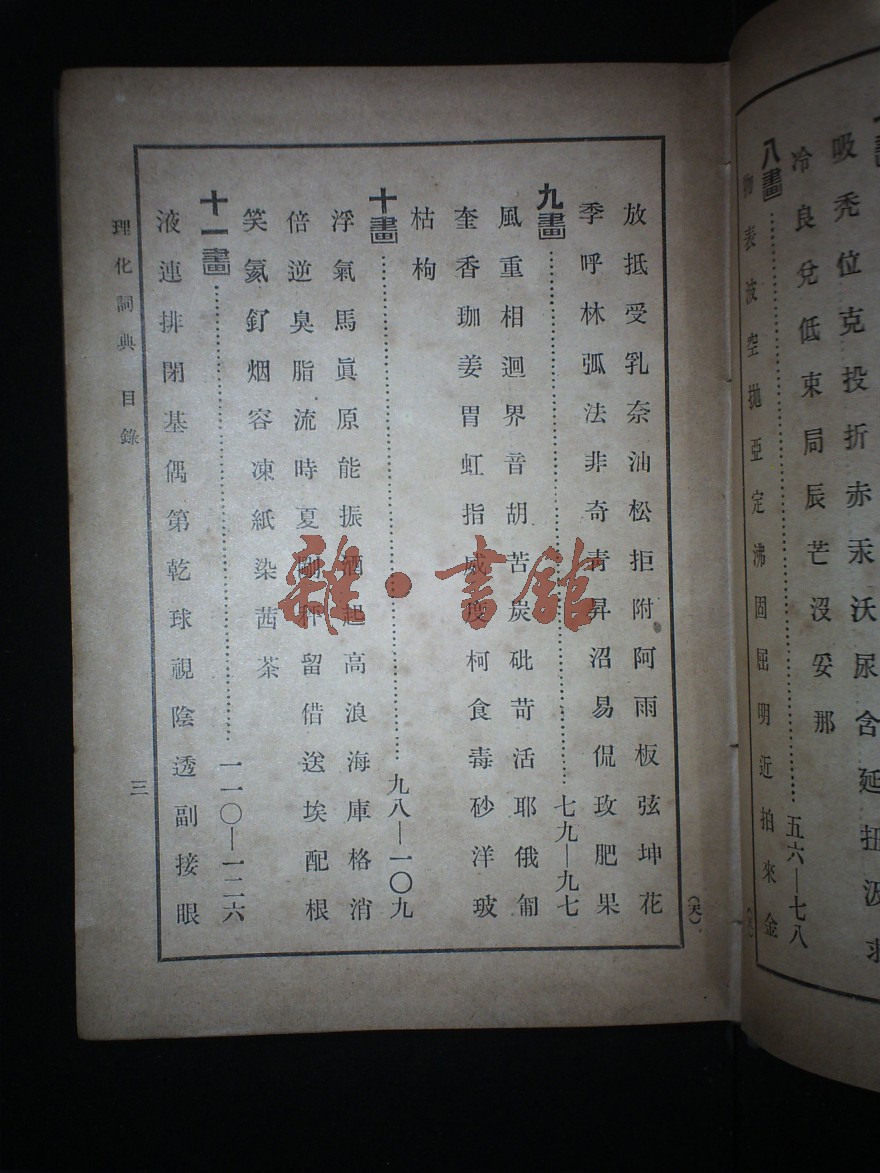 吸禿位克投折赤汞沃尿含延扭汲求
冷良兌低束局辰芒沒妥那
八畫……五六—七八
物表波空拋亞定沸固屈明近拍來金
放抵受乳奈油松拒附阿雨板弦坤花
季呼林弧法非奇青昇沼易侃玫肥果
九畫……七九—九七
風重相迴界音胡苦炭砒苛活耶俄匍
奎香珈姜胃虹指威度柯食毒砂洋玻
枯枸
十畫……九八—一〇九
浮氣馬眞原能振酒起高浪海庫格消
倍逆臭脂流時夏剛秤留借送埃配根
笑氦釘烟容凍紙染茜茶
十一畫……一一〇—一二六
液連排閉基偶第乾球視陰透副接眼
理化詞典 目錄
三
雜·書館